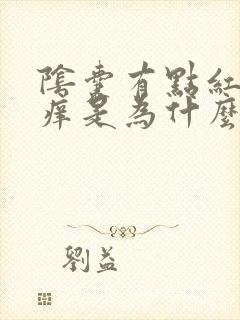 陰囊有點紅
癢是為什麼
劉益